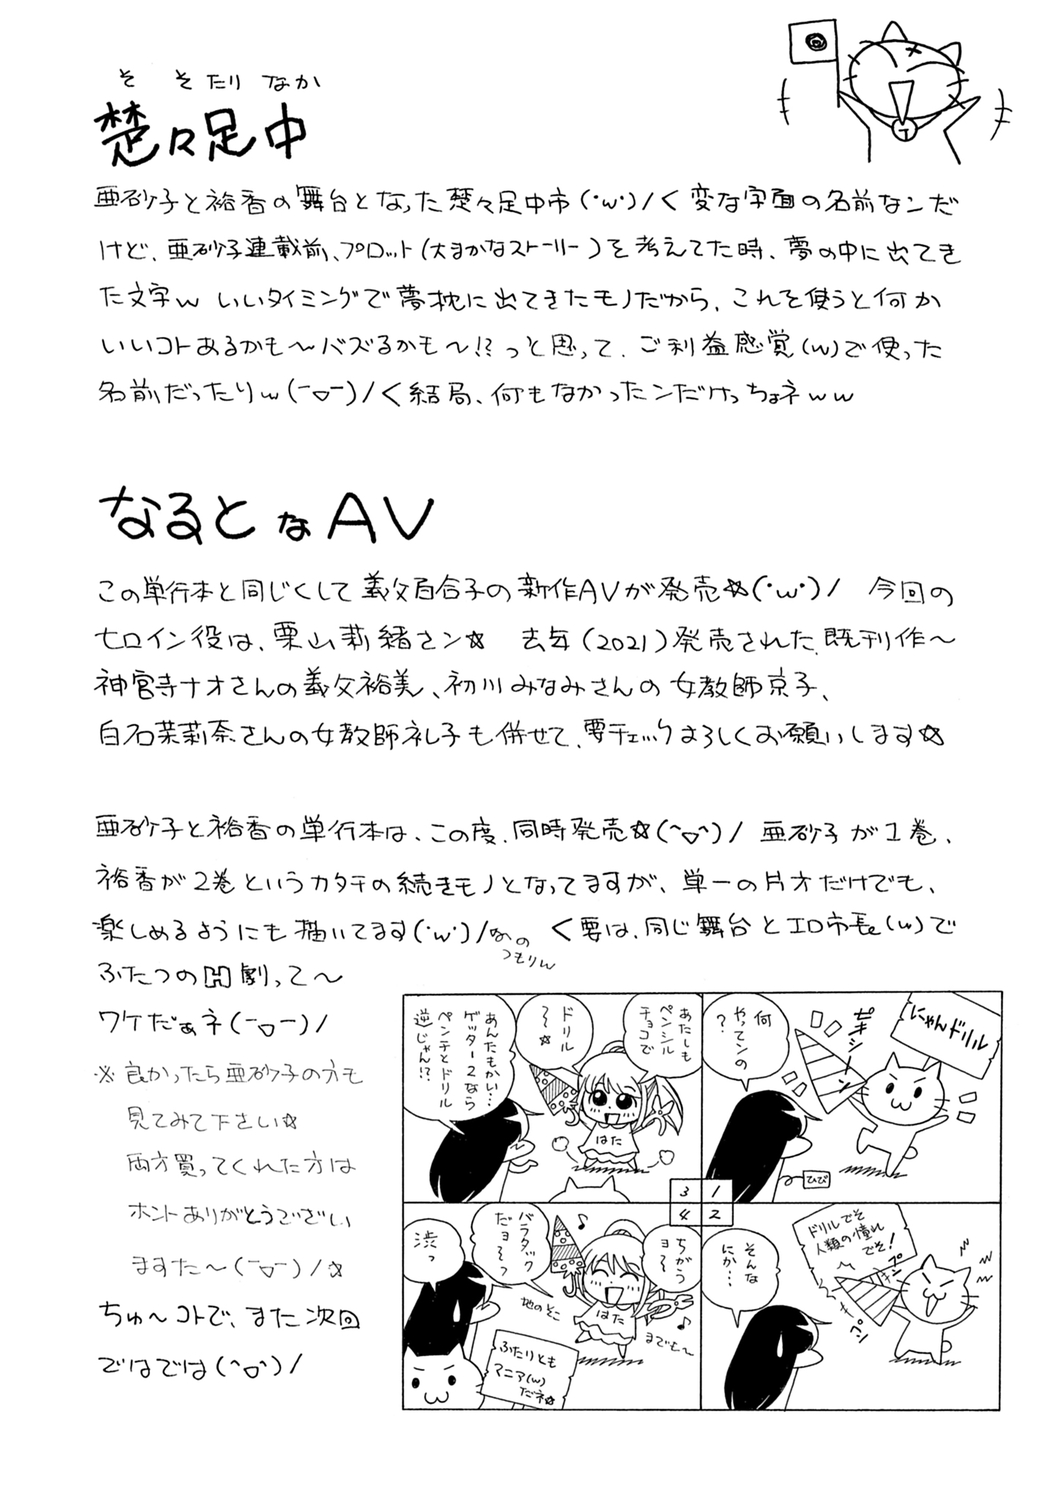 そ そたり なか
楚々足中
亜砂子と裕香の舞台となった楚々足中市(・w・)/く変な字面の名前なンだ
けど、亜砂子連載前、プロット(大まかなストーリー)を考えてた時、夢の中に出てき
た文字w いいタイミングで夢枕に出てきたモノだから、これを使うと何か
いいコトあるかも〜バズるかも〜!?っと思って、ご利益感覚(w)で使った
名前だったりw(ー▽ー)/く結局、何もなかったンだけっちょネww
なるとなAV
この単行本と同じくして義父百合子の新作AVが発売☆(・w・)/ 今回の
ヒロイン役は、栗山莉緒さン☆ 去年(2021)発売された、既刊作〜
神宮寺ナオさんの義父裕美、初川みなみさんの女教師京子、
白石茉莉奈さんの女教師礼子も併せて、要チェックよろしくお願いします☆
亜砂子と裕香の単行本は、この度、同時発売☆(^▽^)/ 亜砂子が1巻、
裕香が2巻というカタチの続きモノとなってますが、単一の片方だけでも、
楽しめるようにも描いてます(・w・)/なの
つもりw
く要は、同じ舞台とエロ市長(w)で
ふたつのH劇って〜
ワケだぁネ(ー▽ー)/
※良かったら亜砂子の方も
見てみて下さい☆
両方買ってくれた方は
ホントありがとうござい
ますた〜(ー▽ー)/☆
ちゅ〜コトで、また次回
ではでは(^▽^)/
にゃんドリル
ギュギューン
何
やってンの
?
ひぴ
1
ドリルでそ
人類の憧れ
でそ!
そんな
にか…
2
あたしも
ペンシル
チョコで
ドリル
〜〜☆
あんたもかい…
ゲッター2なら
ペンチとドリル
逆じゃん!?
はた
3
ちがう
ョ〜〜
バラタック
だョ〜〜っ
地のそこ
までも〜
はた
渋っ
ふたりとも
マニア(w)
だネ☆
4